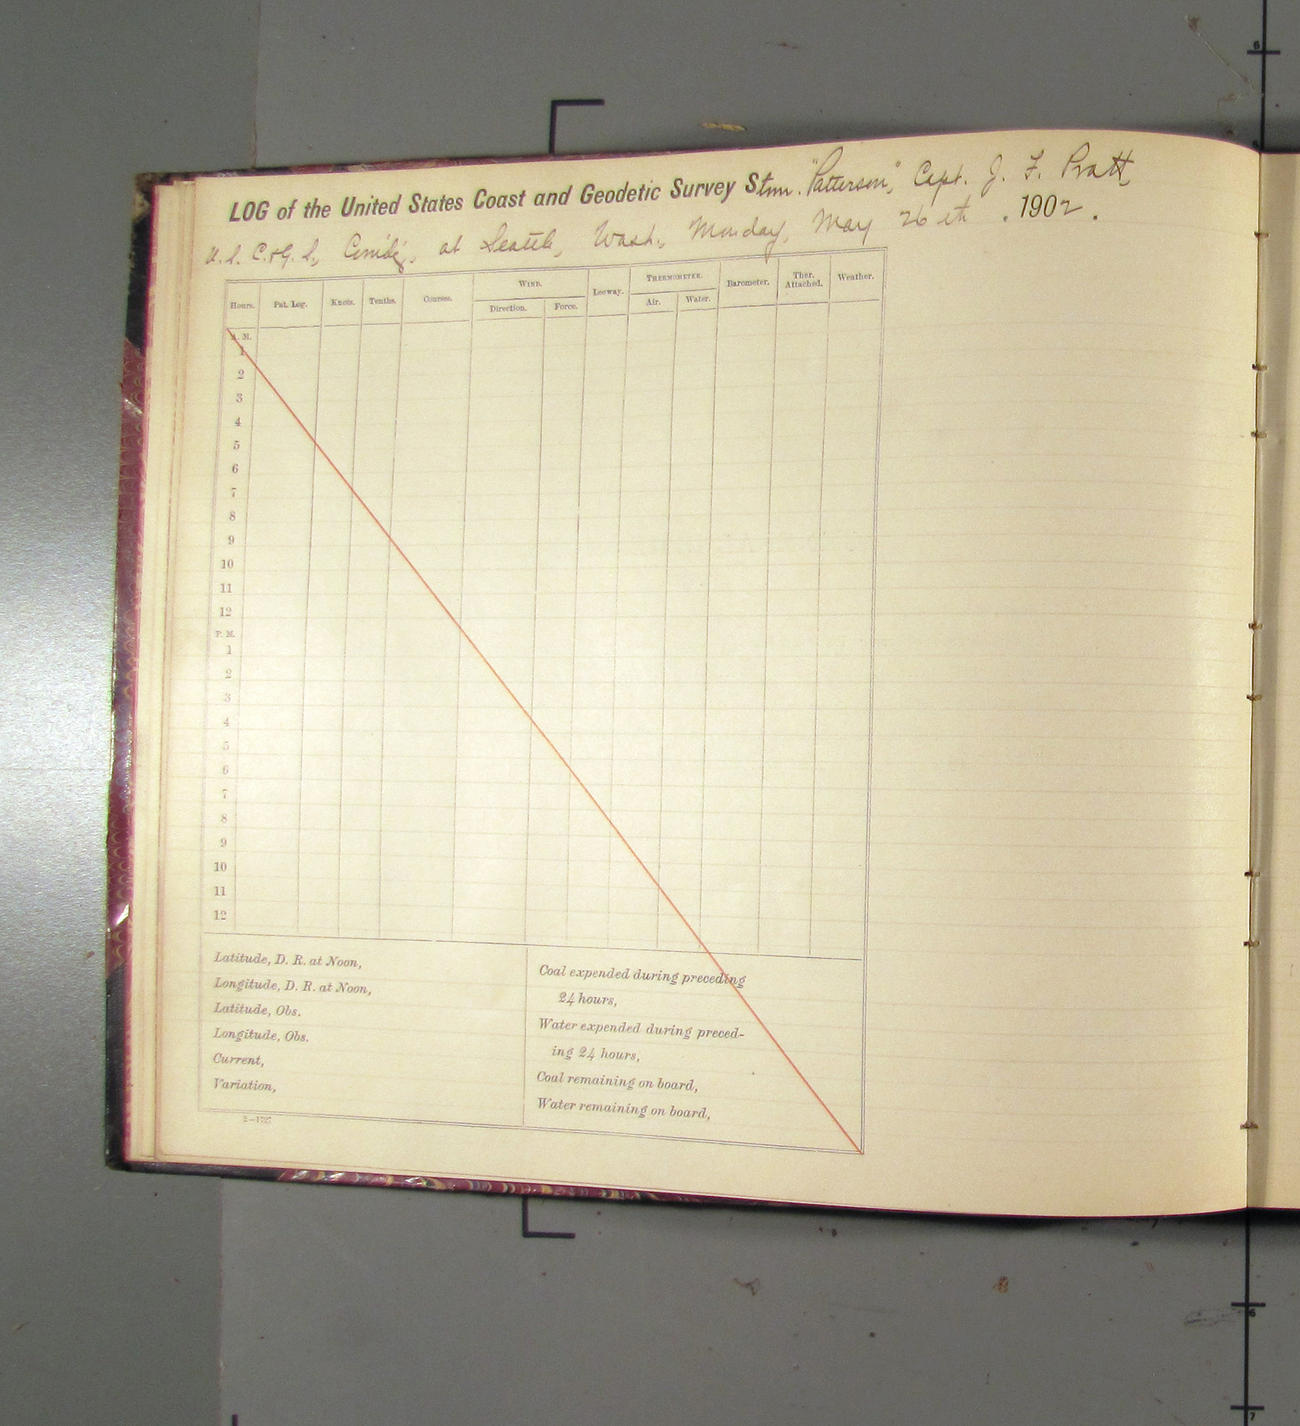 LOG of the United States Coast and Geodetic Survey Stmr. "Patterson," Capt. J. F. Pratt
U. S. C. & G. S., Com'd'g, at Seattle, Wash., Monday, May 26th . 1902.
Hours. Pat. Log. Knots. Tenths. Courses. WIND. Leeway. THERMOMETER. Barometer. Ther. Attached. Weather.
Direction. Force. Air. Water.
A. M.
1
2
3
4
5
6
7
8
9
10
11
12
P. M.
1
2
3
4
5
6
7
8
9
10
11
12
Latitude, D. R. at Noon,
Longitude, D. R. at Noon,
Latitude, Obs.
Longitude, Obs.
Current,
Variation,
Coal expended during preceding
24 hours,
Water expended during preced-
ing 24 hours,
Coal remaining on board,
Water remaining on board,
2—1727
6
6
7